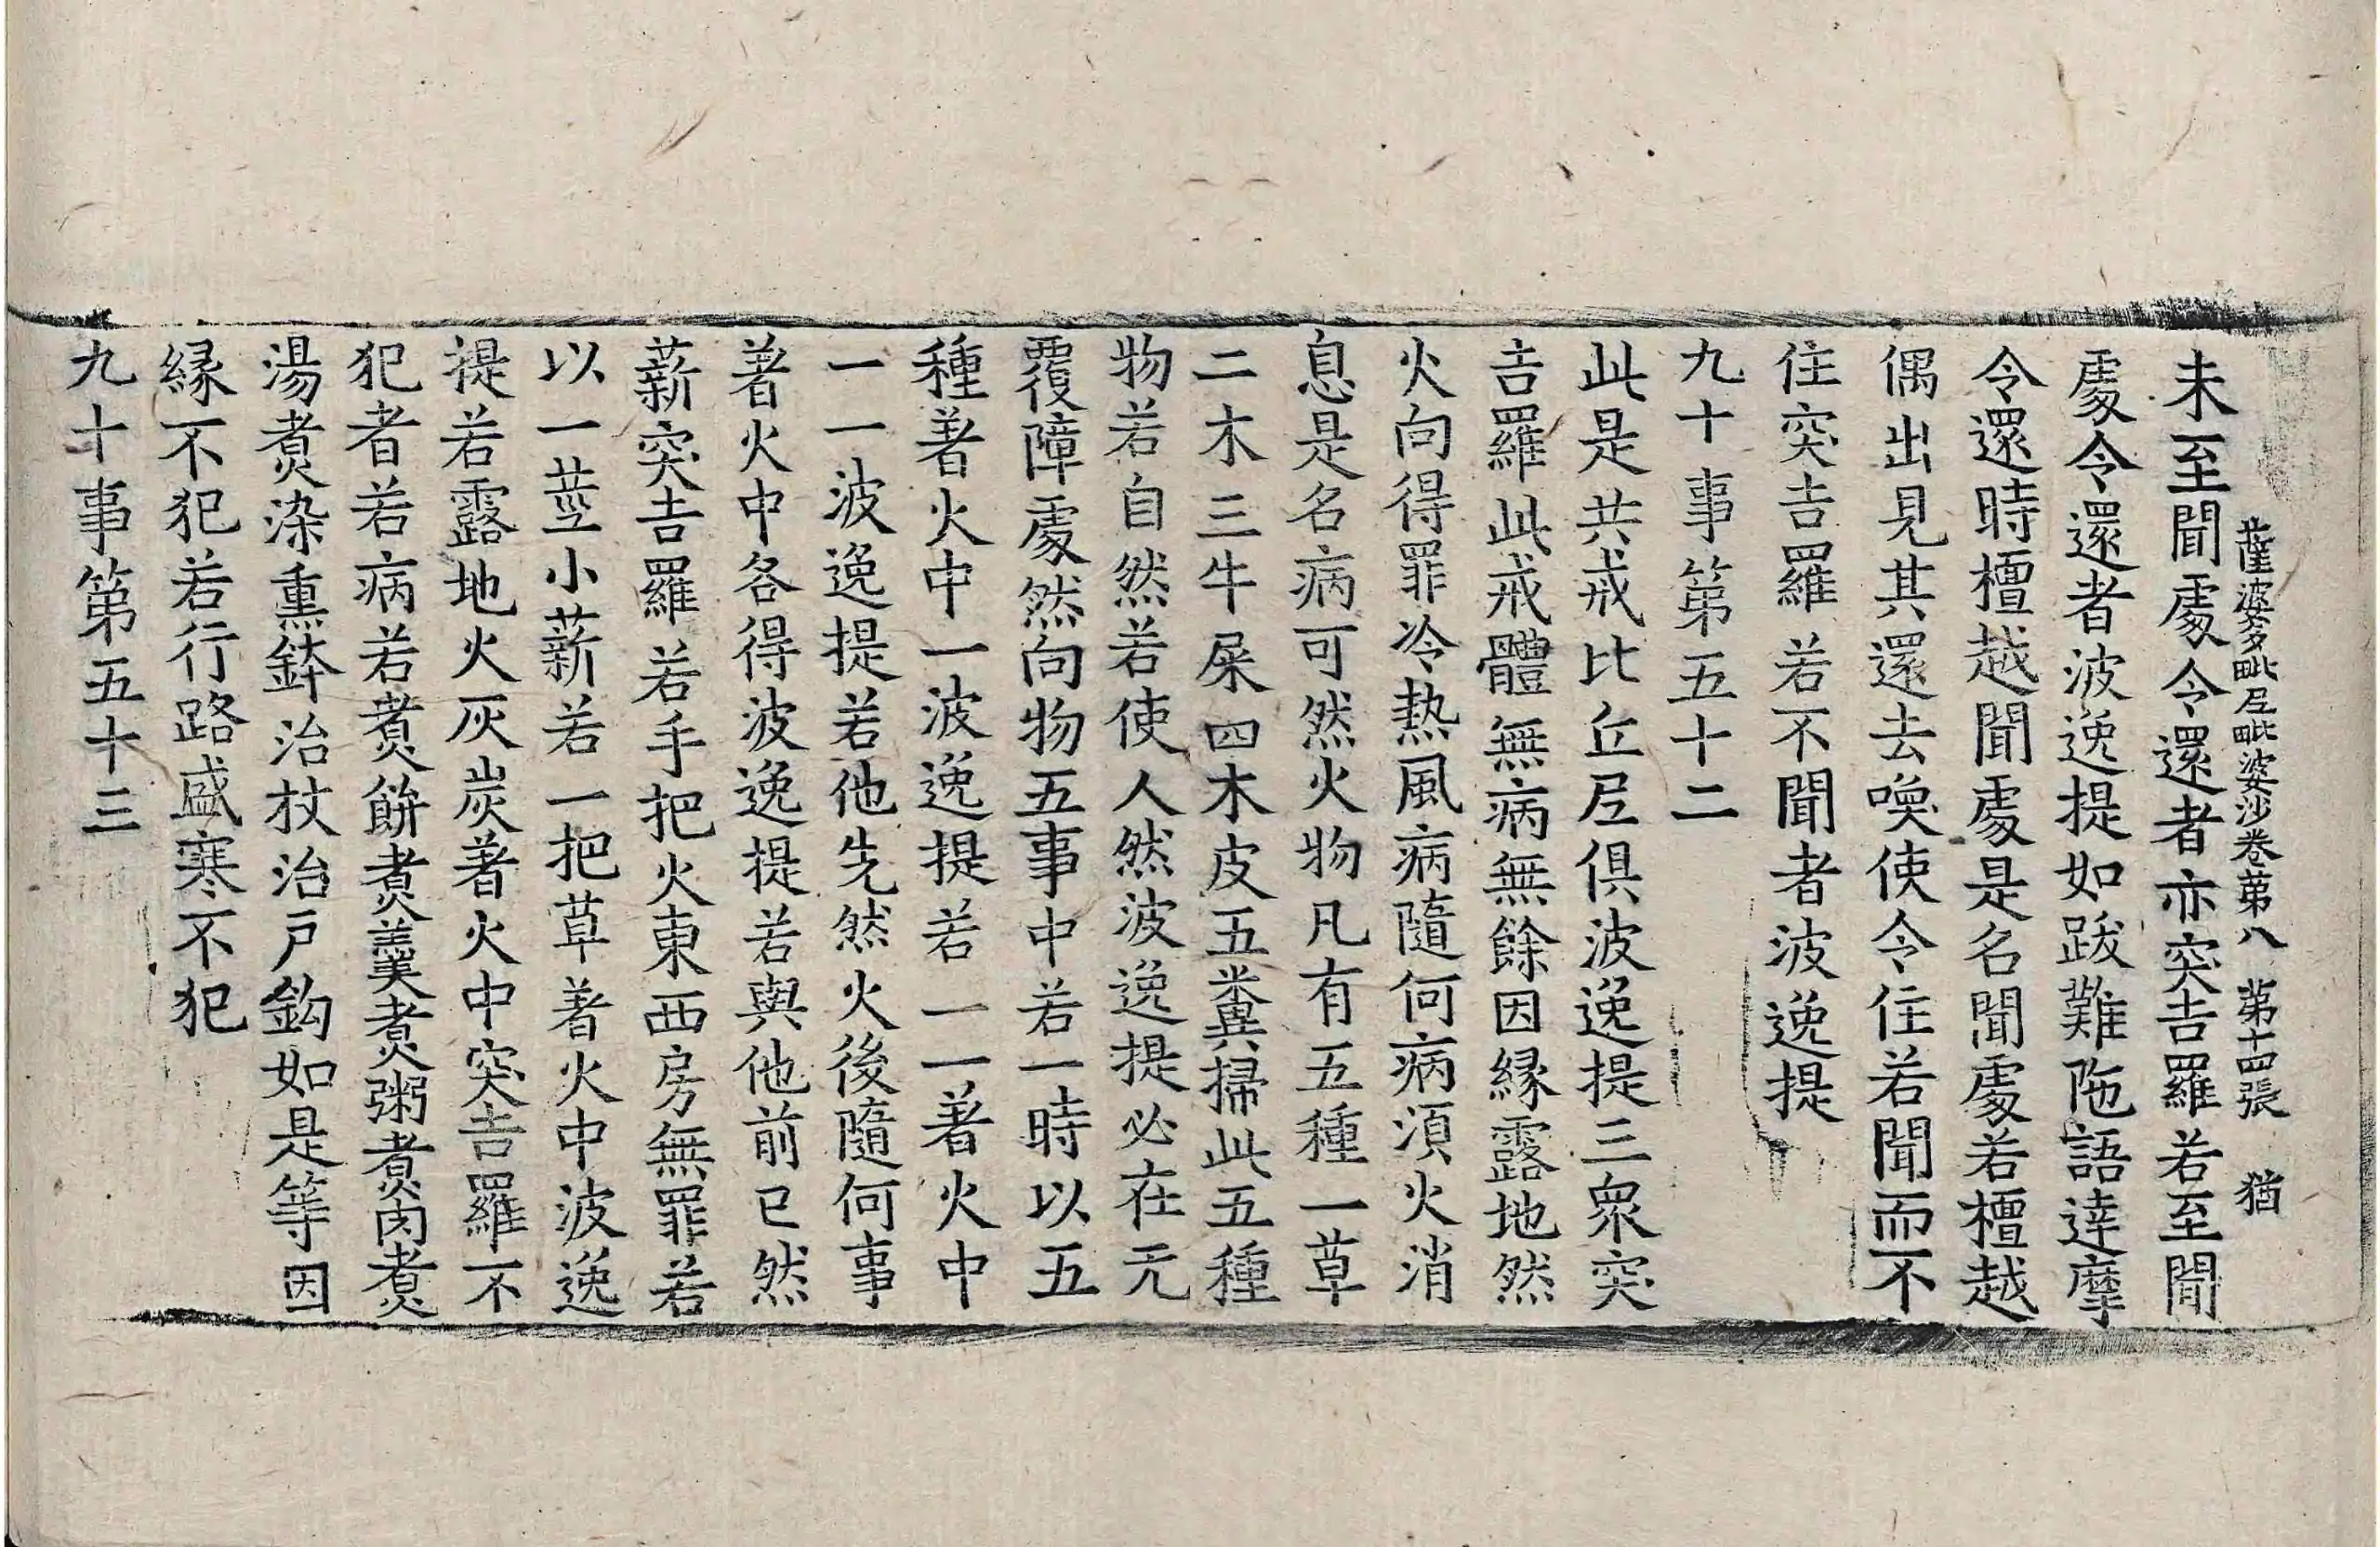 薩婆多毗尼毗婆沙卷第八　第十四張　猶
未至聞處令還者亦突吉羅若至聞
處令還者波逸提如跋難陁語達摩
令還時檀越聞處是名聞處若檀越
偶出見其還去喚使令住若聞而不
住突吉羅若不聞者波逸提
九十事第五十二
此是共戒比丘尼俱波逸提三衆突
吉羅此戒體無病無餘因緣露地然
火向得罪冷熱風病隨何病湏火消
息是名病可然火物凡有五種一草
二木三牛屎四木皮五糞掃此五種
物若自然若使人然波逸提必在无
覆障處然向物五事中若一時以五
種著火中一波逸提若一一著火中
一一波逸提若他先然火後隨何事
著火中各得波逸提若與他前已然
薪突吉羅若手把火東西房無罪若
以一莖小薪若一把草著火中波逸
提若露地火灰炭著火中突吉羅不
犯者若病若煑餅煑羹煑粥煑肉煑
湯煑染熏鉢治杖治戶鉤如是等因
緣不犯若行路盛寒不犯
九十事第五十三